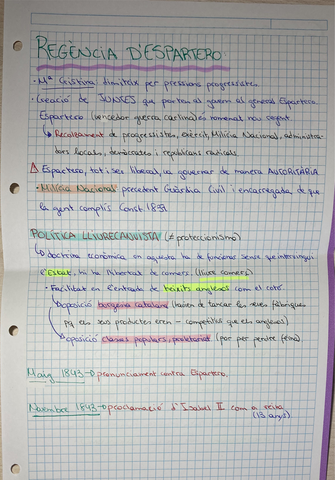 REGÈNCIA D'ESPARTERO
• Mª Cristina dimiteix per pressions progressistes.
• Creació de JUNTES que porten al govern al general Espartero.
Espartero (vencedor guerra carlina) és nomenat nou regent.
↳ Recolzament de progressistes, exèrcit, Milícia Nacional, administra-
dors locals, demòcrates i republicans radicals.
⚠ Espartero, tot i ser liberal, va governar de manera AUTORITÀRIA
• Milícia Nacional: precedent Guàrdia Civil i encarregada de que
la gent complís Const. 1837.
POLÍTICA LLIURECANVISTA (≠ proteccionisme)
↳ doctrina econòmica en aquesta ha de funcionar sense que intervingui
l'Estat, hi ha llibertat de comerç. (lliure comerç)
• Facilitat en l'entrada de teixits anglesos com el cotó.
↳ oposició burgesia catalana (havien de tancar les seves fàbriques
pq els seus productes eren - competitius que els anglesos)
↳ oposició classes populars, proletariat (por per perdre feina)
Maig 1843 → pronunciament contra Espartero.
Novembre 1843 → proclamació d'Isabel II com a reina
(13 anys)